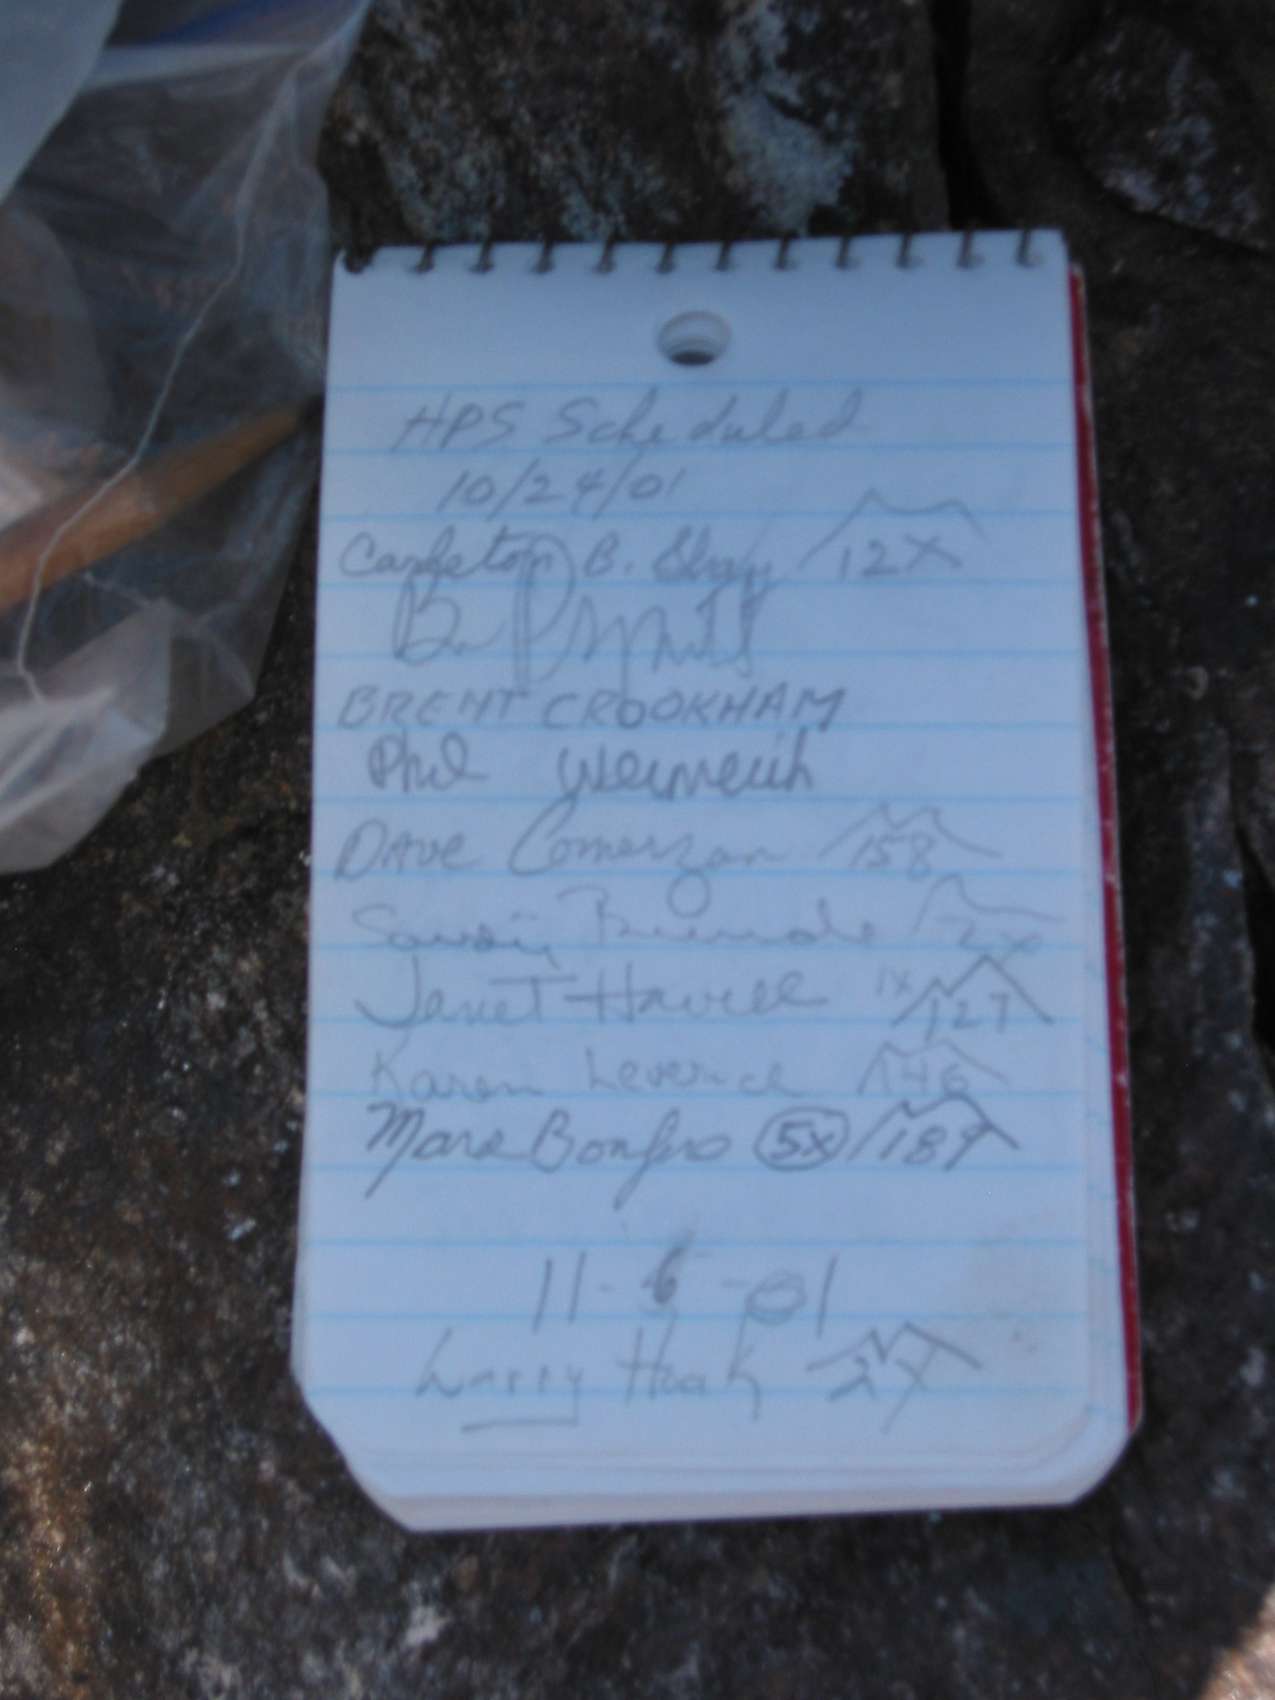 HPS Scheduled
10/24/01
Carleton B. Shay 12X
BRENT CROOKHAM
Phil Wermerich
DAVE Comerzan 158
2X
Janet Howell 1X 127
Karen Leverich 146
Mars Bonfire 5X 189
11-6-01
Larry Hoak 2X